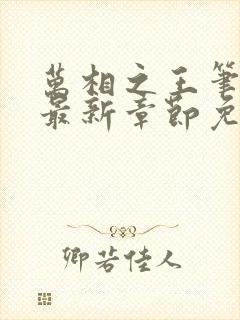 萬相之王筆
最新章節免
卿若佳人